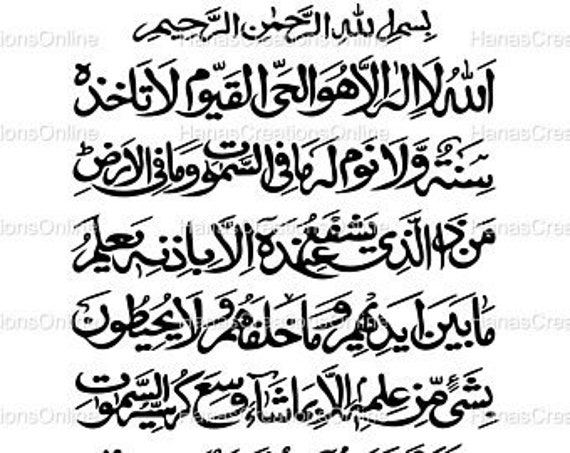 بِسْمِ اللهِ الرَّحْمٰنِ الرَّحِيْمِ
اَللهُ لَا اِلٰهَ اِلَّا هُوَ الْحَىُّ الْقَيُّوْمُ لَا تَاْخُذُهٗ
سِنَةٌ وَّلَا نَوْمٌ لَهٗ مَا فِى السَّمٰوٰتِ وَمَا فِى الْاَرْضِ
مَنْ ذَا الَّذِىْ يَشْفَعُ عِنْدَهٗ اِلَّا بِاِذْنِهٖ يَعْلَمُ
مَا بَيْنَ اَيْدِيْهِمْ وَمَا خَلْفَهُمْ وَلَا يُحِيْطُوْنَ
بِشَىْءٍ مِّنْ عِلْمِهٖ اِلَّا بِمَا شَآءَ وَسِعَ كُرْسِيُّهُ السَّمٰوٰتِ
HanasCreationsOnline